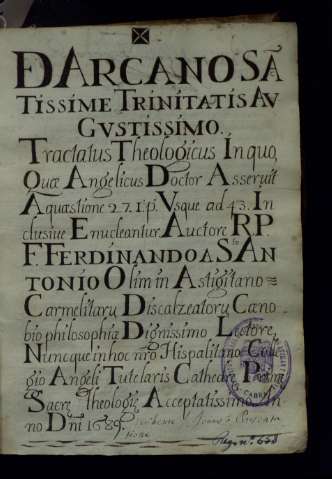 DARCANO SÃ
TISSIME TRINITATIS AV
GVSTISSIMO.
Tractatus Theologicus In quo,
Quæ Angelicus Doctor Asseruit
A quæstione 27. 1. p. Vsque ad 43. In
clusiue Enucleantur Auctore RP.
F FERDINANDO A Sto AN
TONIO Olim in Astigitano
Carmelitarũ Discalzeatorũ Cæno
bio philosophiæ Dignissimo Lectore,
Nuncque in hoc nr̃o Hispalitano Colle
gio Angeli Tutelaris Cathedræ Primæ
Sacre Theologiæ Acceptatissimo. An
no Dñi 1689.
Reg. nº. 658